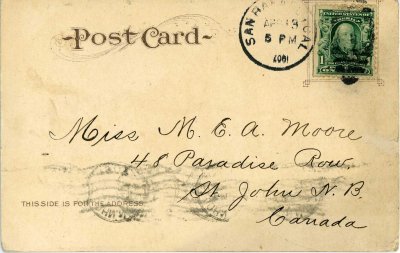 Post Card
SAN RA CAL
5 PM
Miss M. E. A. Moore
48 Paradise Row.
St. John N. B.
THIS SIDE IS FOR THE ADDRESS
Canada